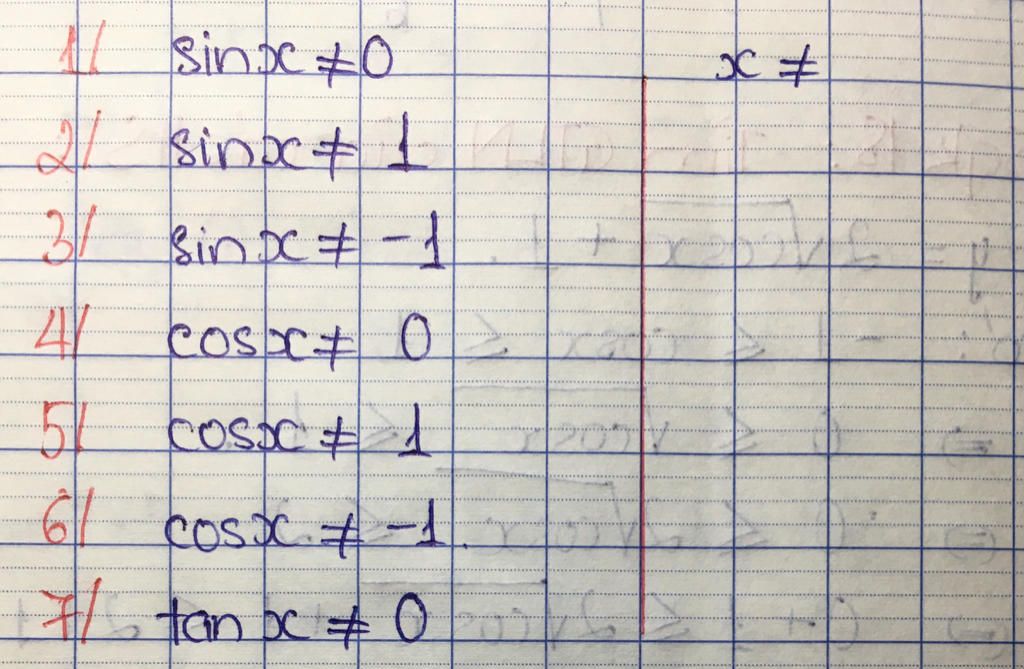 1/ sinx ≠ 0 x ≠
2/ sinx ≠ 1
3/ sinx ≠ -1
4/ cosx ≠ 0
5/ cosx ≠ 1
6/ cosx ≠ -1.
7/ tanx ≠ 0